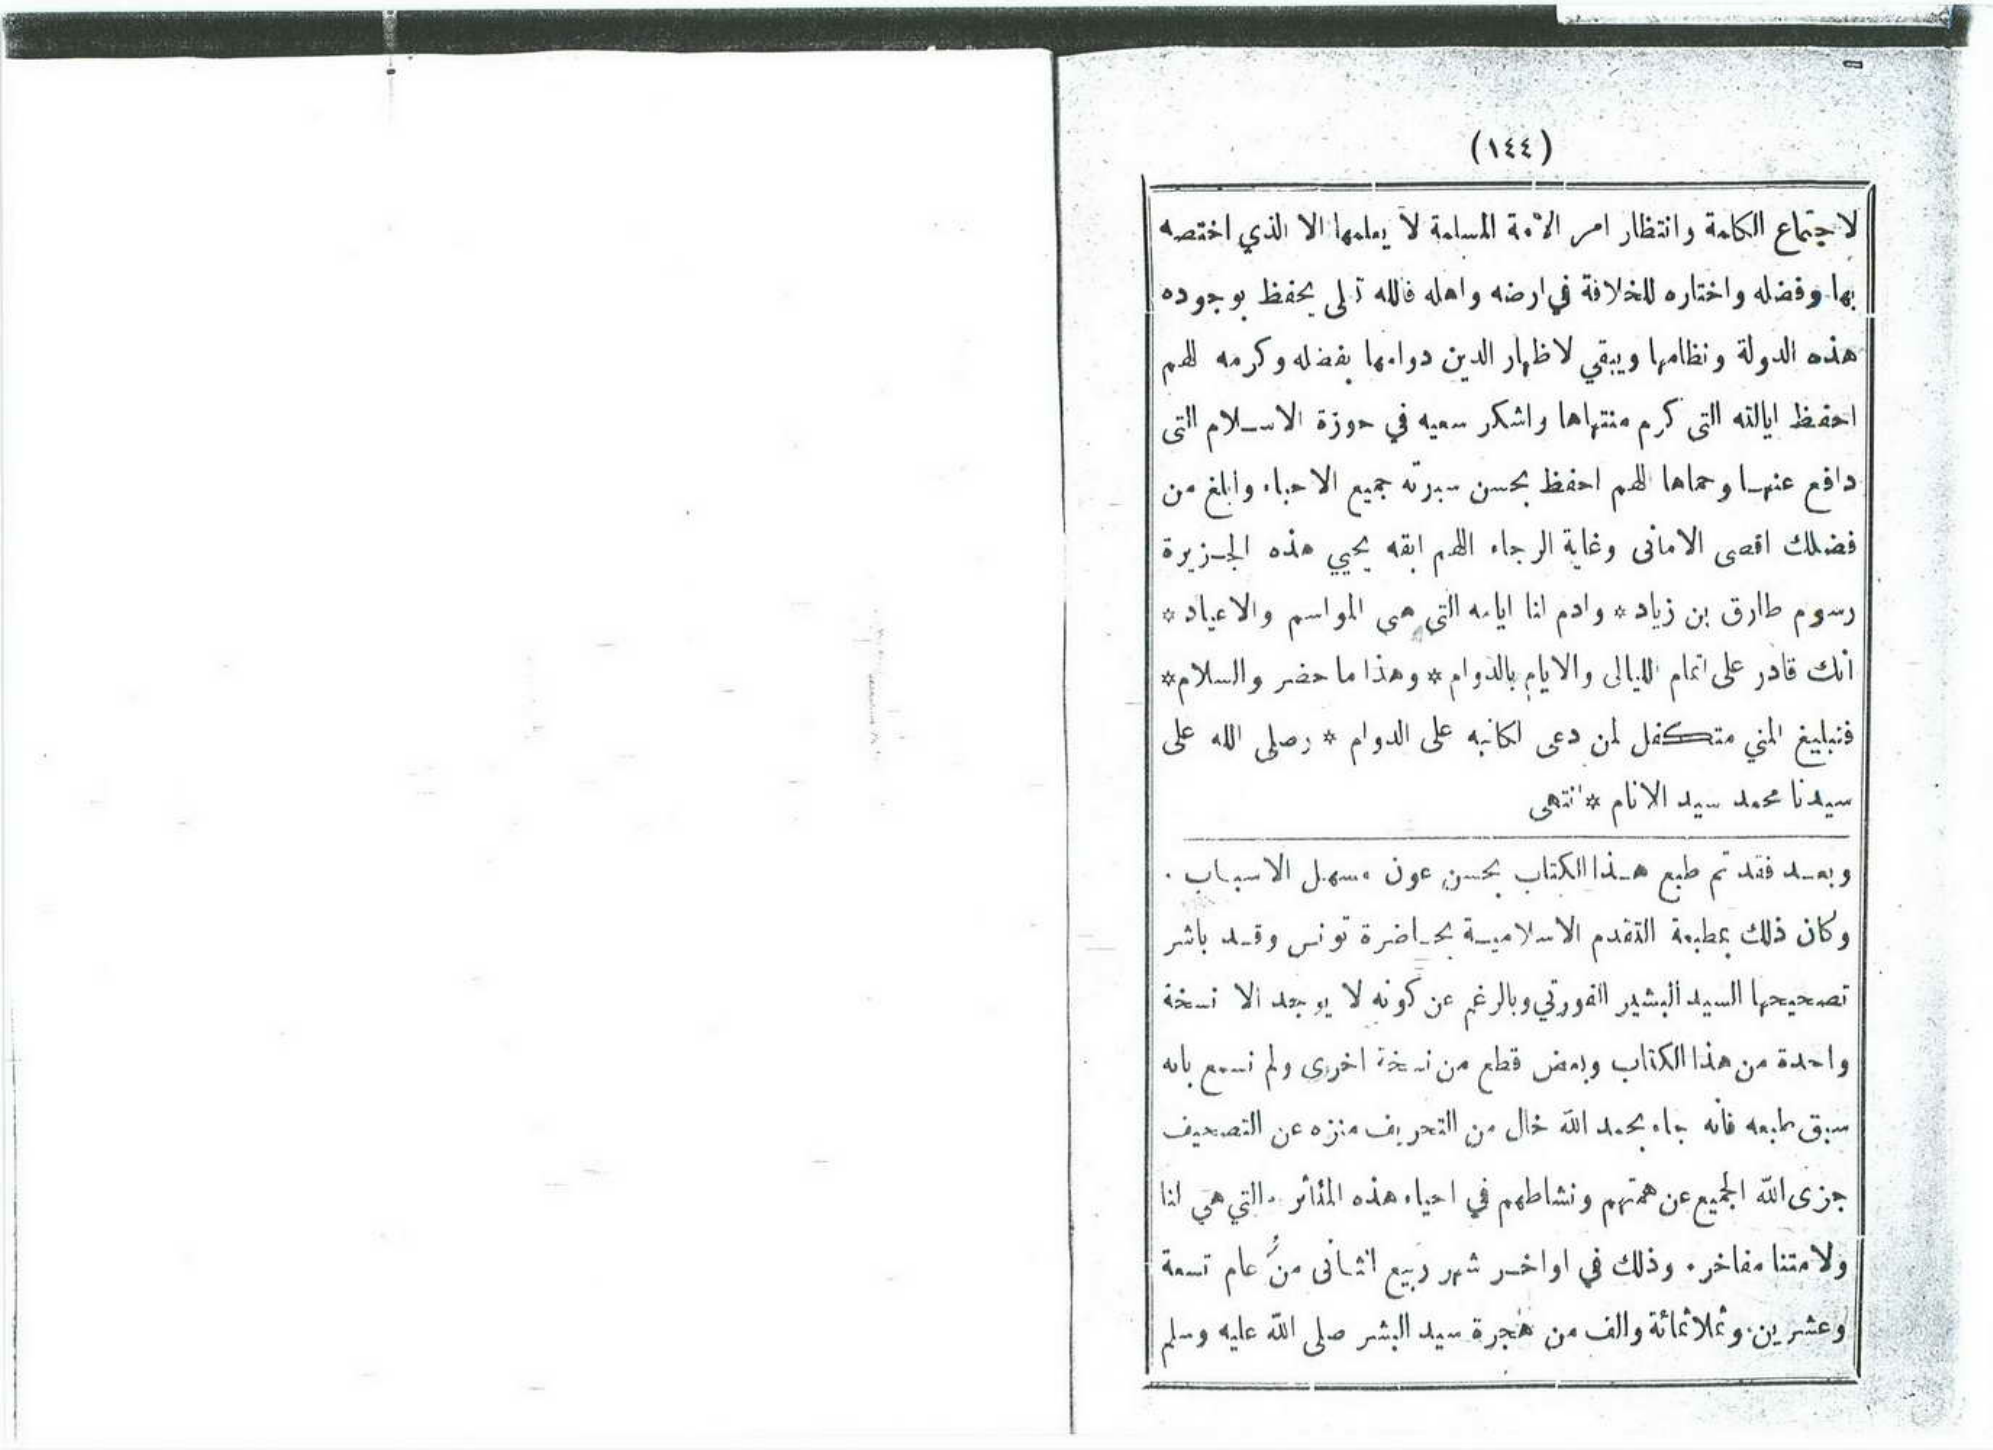 (١٤٤)
لاجتماع الكلمة وانتظار امر الأمة المسلمة لا يعلمها الا الذي اختصه
بها وفضله واختاره للخلافة في ارضه واهله فالله تعلى يحفظ بوجوده
هذه الدولة ونظامها ويبقي لاظهار الدين دوامها بفضله وكرمه للهم
احفظ ايالته التى كرم منتهاها واشكر سعيه في حوزة الاسلام التى
دافع عنها وحماها للهم احفظ بحسن سيرته جميع الاحباء وابلغ من
فضلك اقصى الامانى وغاية الرجاء اللهم ابقه يحيي هذه الجزيرة
رسوم طارق بن زياد * وادم لنا ايامه التى هى المواسم والاعياد *
انك قادر على اتمام الليالى والايام بالدوام * وهذا ما حضر والسلام *
فتبليغ المني متكفل لمن دعى لكاتبه على الدوام * وصلى الله على
سيدنا محمد سيد الانام * انتهى
وبعد فقد تم طبع هذا الكتاب بحسن عون مسهل الاسباب .
وكان ذلك بمطبعة التقدم الاسلامية بحاضرة تونس وقد باشر
تصحيحها السيد البشير الفورتي وبالرغم عن كونه لا يوجد الا نسخة
واحدة من هذا الكتاب وبعض قطع من نسخة اخرى ولم نسمع بانه
سبق طبعه فانه جاء بحمد الله خال من التحريف منزه عن التصحيف
جزى الله الجميع عن همتهم ونشاطهم في احياء هذه المئاثر . التي هي لنا
ولامتنا مفاخر . وذلك في اواخر شهر ربيع الثانى من عام تسعة
وعشرين وثلاثمائة والف من هجرة سيد البشر صلى الله عليه وسلم